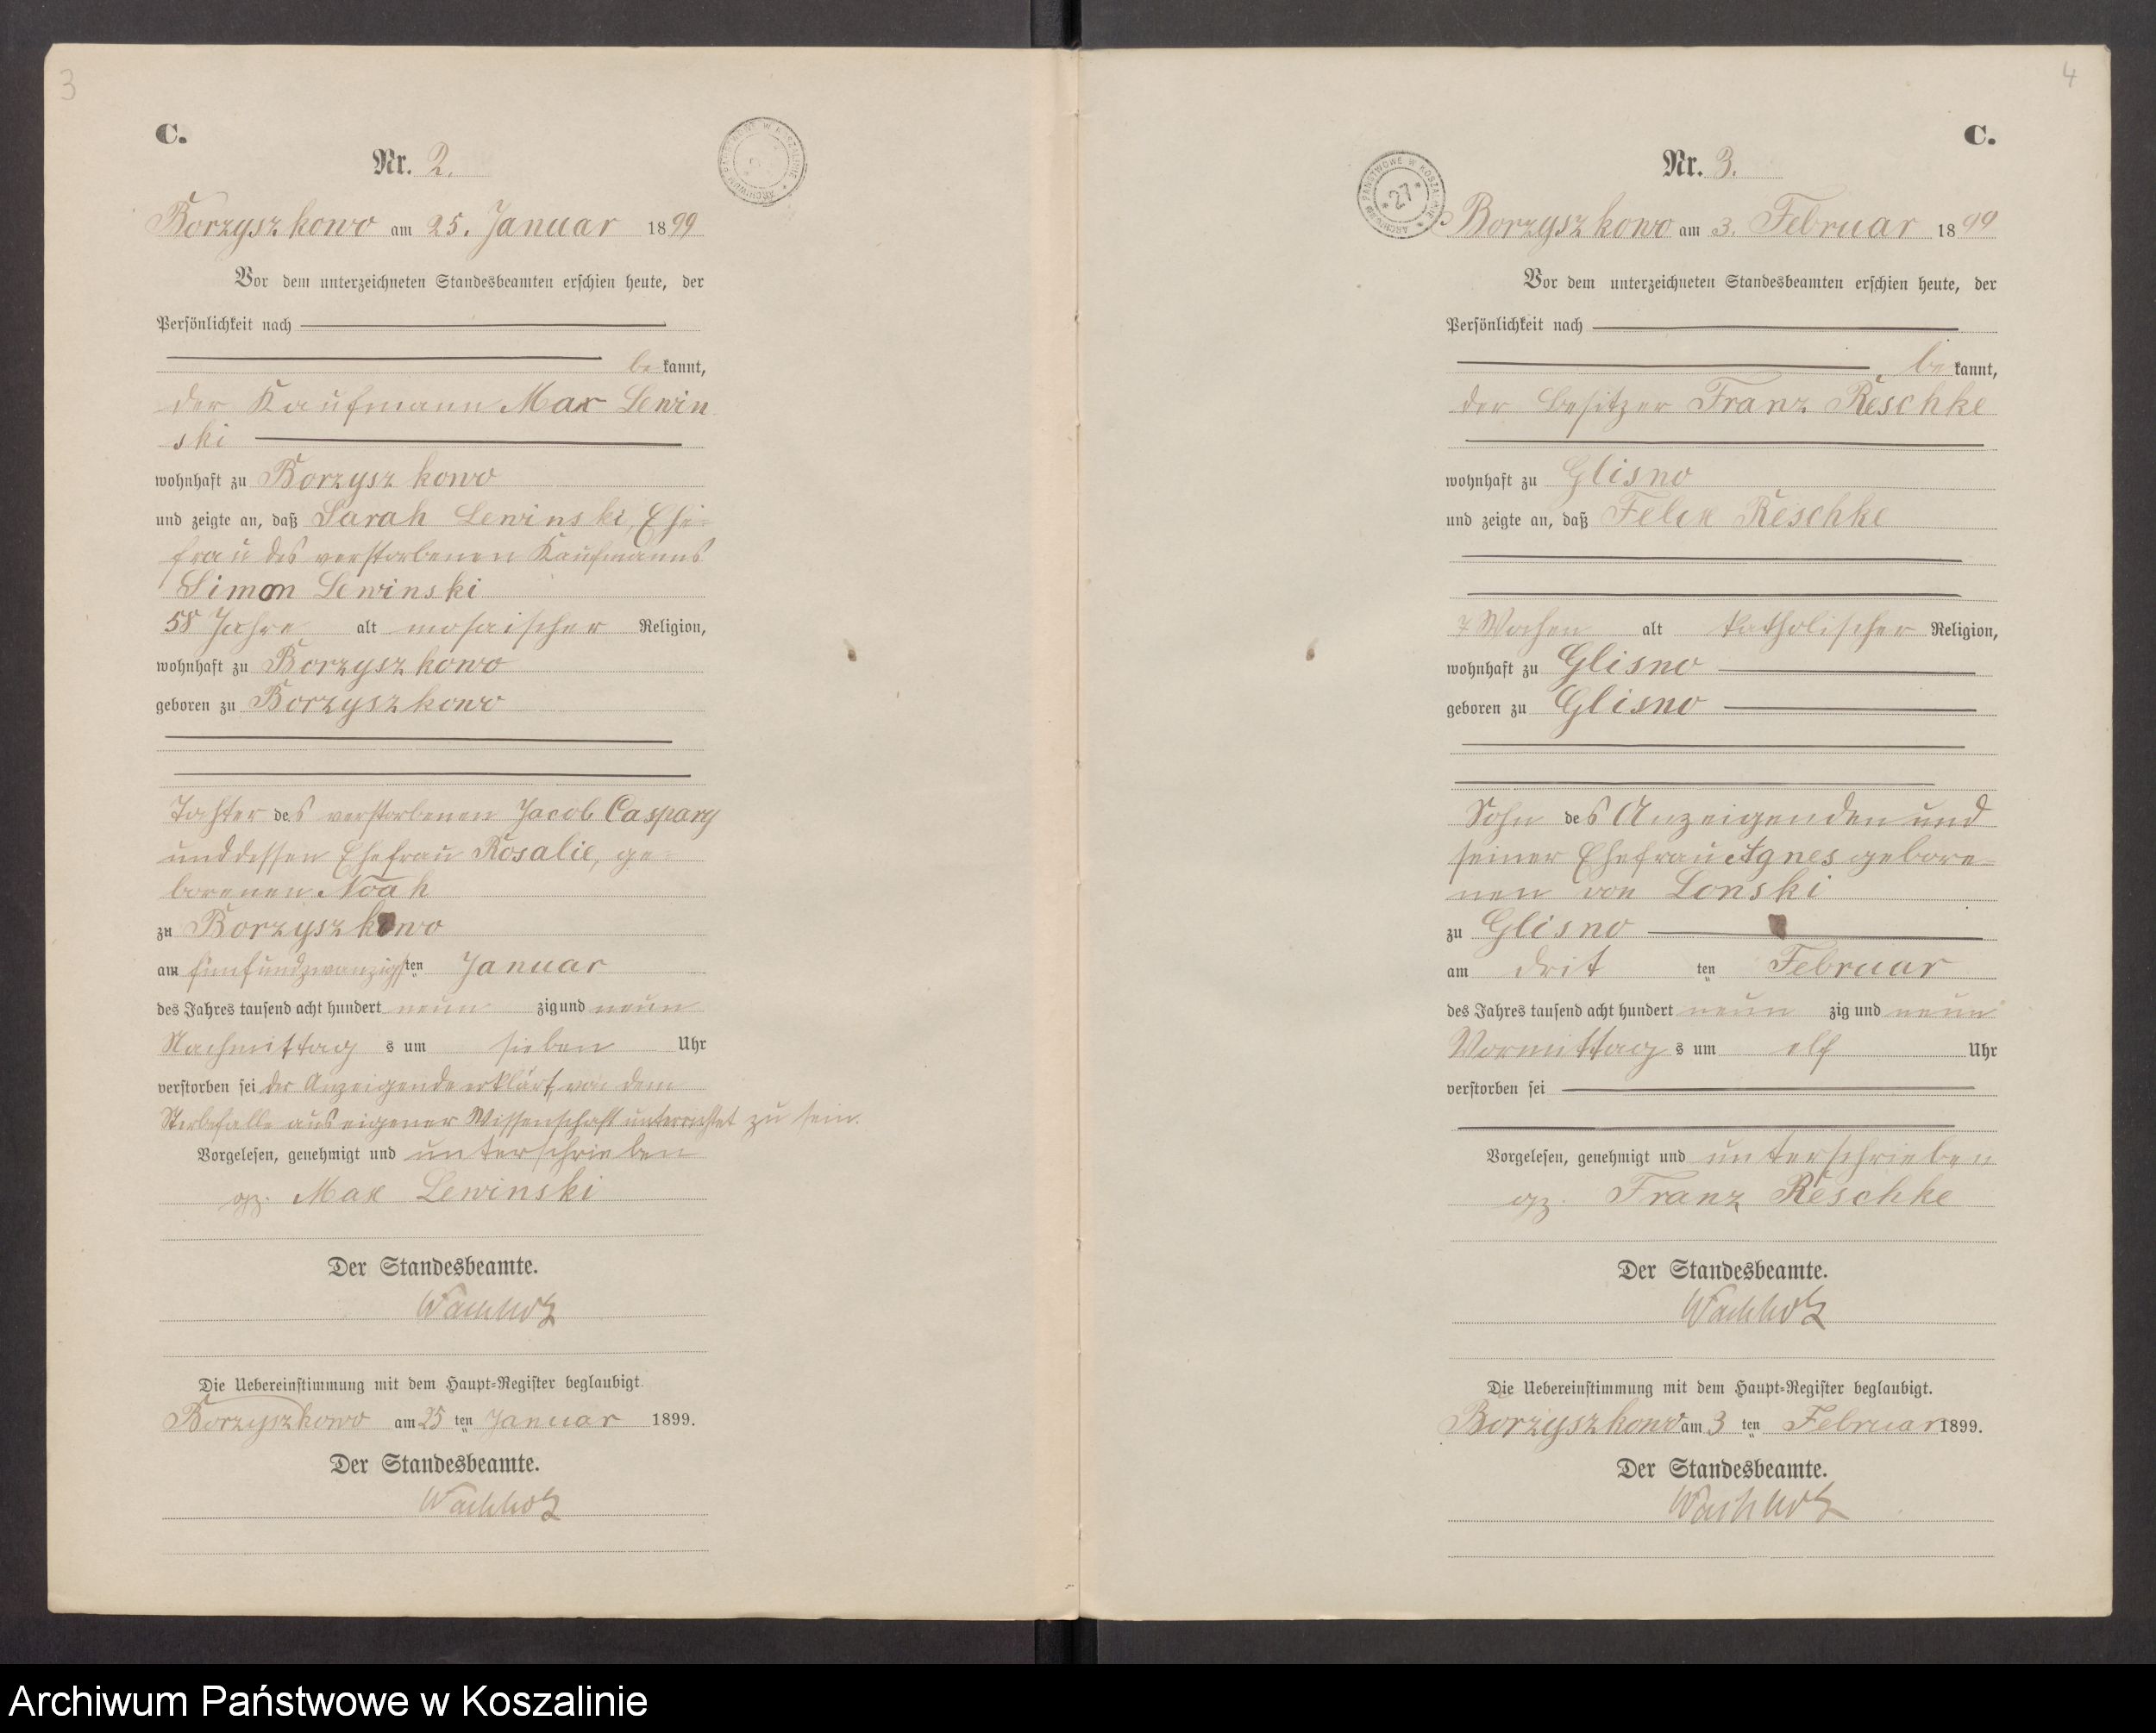 3
C.
Nr. 2.
Borzyszkowo am 25. Januar 1899
Vor dem unterzeichneten Standesbeamten erschien heute, der
Persönlichkeit nach
be kannt,
der Kaufmann Max Lewin
ski
wohnhaft zu Borzyszkowo
und zeigte an, daß Sarah Lewinski, Ehe-
frau des verstorbenen Kaufmanns
Simon Lewinski
58 Jahre alt mosaischer Religion,
wohnhaft zu Borzyszkowo
geboren zu Borzyszkowo
Tochter des verstorbenen Jacob Caspary
und dessen Ehefrau Rosalie, ge-
borenen Noah
zu Borzyszkowo
am fünfundzwanzigsten Januar
des Jahres tausend acht hundert neun zig und neun
Nachmittag s um sieben Uhr
verstorben sei der Anzeigende erklärt, von dem
Sterbefalle aus eigener Wissenschaft unterrichtet zu sein.
Vorgelesen, genehmigt und unterschrieben
gz. Max Lewinski
Der Standesbeamte.
Wachholz
Die Uebereinstimmung mit dem Haupt-Register beglaubigt.
Borzyszkowo am 25 ten Januar 1899.
Der Standesbeamte.
Wachholz
4
C.
ARCHIWUM PAŃSTWOWE W KOSZALINIE
* 27 *
Nr. 3.
Borzyszkowo am 3. Februar 1899
Vor dem unterzeichneten Standesbeamten erschien heute, der
Persönlichkeit nach
be kannt,
der Besitzer Franz Reschke
wohnhaft zu Glisno
und zeigte an, daß Felix Reschke
7 Wochen alt katholischer Religion,
wohnhaft zu Glisno
geboren zu Glisno
Sohn des Anzeigenden und
seiner Ehefrau Agnes gebore-
nen von Lonski
zu Glisno
am drit ten Februar
des Jahres tausend acht hundert neun zig und neun
Vormittag s um elf Uhr
verstorben sei
Vorgelesen, genehmigt und unterschrieben
gz. Franz Reschke
Der Standesbeamte.
Wachholz
Die Uebereinstimmung mit dem Haupt-Register beglaubigt.
Borzyszkowo am 3 ten Februar 1899.
Der Standesbeamte.
Wachholz
Archiwum Państwowe w Koszalinie